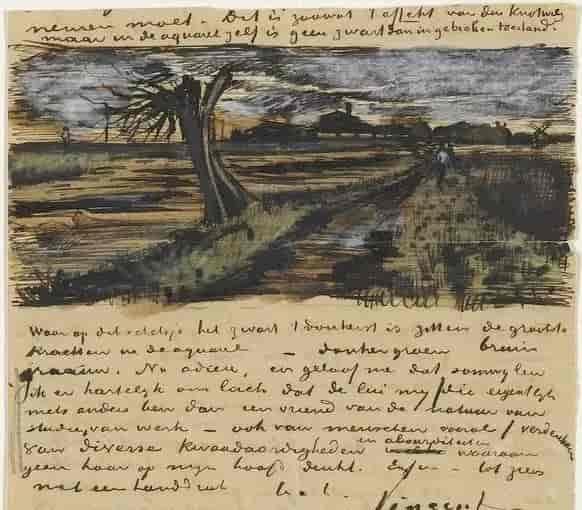 nemen moet. Dit is zoowat 't effekt van den Knotwilg
maar in de aquarel zelf is geen zwart dan in gebroken toestand.
Waar op dit schetsje het zwart 't donkerst is zitten de grootste
krachten in de aquarel — donkergroen bruin
graauw. Nu adieu, en geloof me dat somwijlen
ik er hartelijk om lach dat de lui mij /die eigentlijk
niets anders ben dan een vriend van de natuur van
studie, van werk — ook van menschen vooral/ verdenken
van diverse kwaadaardigheden en absurditeiten waaraan
geen haar op mijn hoofd denkt. Enfin — tot ziens
met een handdruk t. à t.
Vincent